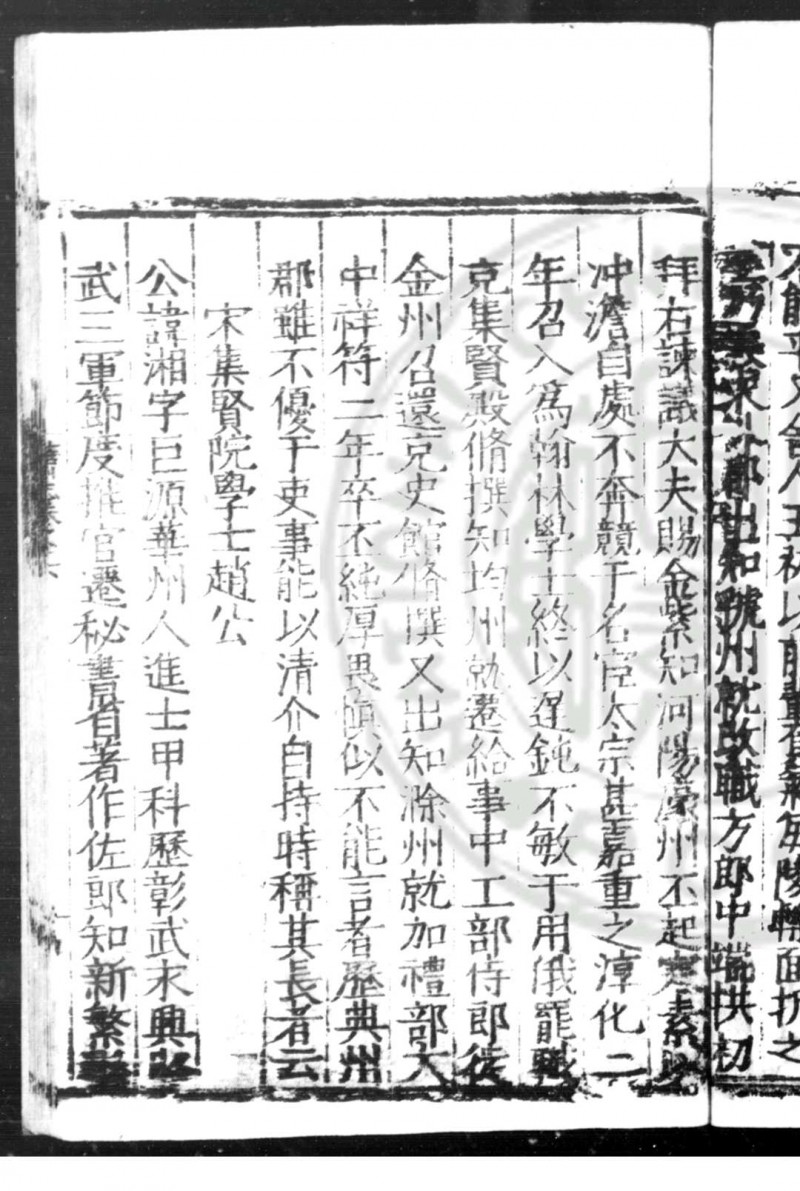 不能平又舍人王祐以
東外郡出知虢州就改職方郎中端拱初
拜右諫議大夫賜金紫知河陽濠州不起素
冲澹自處不奔競于名宦太宗甚嘉重之淳化二
年召入爲翰林學士終以遲鈍不敏于用俄罷職
克集賢殿脩撰知均州就遷給事中工部侍郎徙
金州召還克史館脩撰又出知滁州就加禮部大
中祥符二年卒丕純厚畏慎似不能言者歷典州
郡雖不優于吏事能以清介自持時稱其長者云
宋集賢院學士趙公
公諱湘字巨源華州人進士甲科歷彰武永興昭
武三軍節度推官遷秘書省著作佐郎知新繁